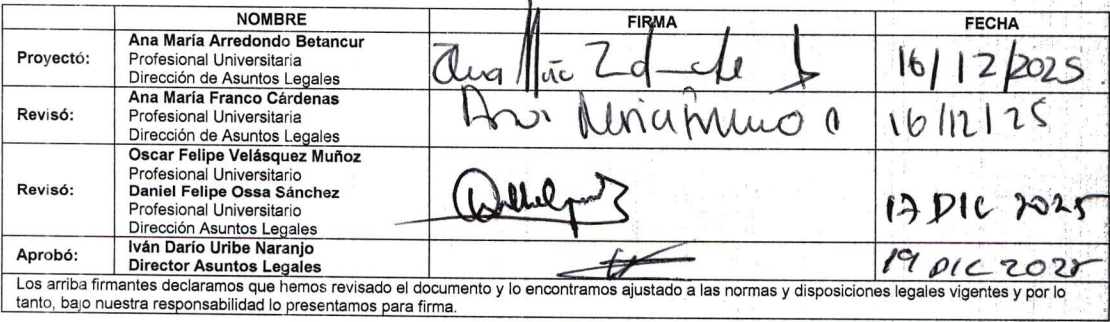 NOMBRE FIRMA FECHA
Proyectó: Ana María Arredondo Betancur
Profesional Universitaria
Dirección de Asuntos Legales
16/12/2025
Revisó: Ana María Franco Cárdenas
Profesional Universitaria
Dirección de Asuntos Legales
Ana María Franco C
16/12/25
Oscar Felipe Velásquez Muñoz
Profesional Universitario
Revisó: Daniel Felipe Ossa Sánchez
Profesional Universitario
Dirección Asuntos Legales
17 DIC 2025
Aprobó: Iván Darío Uribe Naranjo
Director Asuntos Legales
19 DIC 2025
Los arriba firmantes declaramos que hemos revisado el documento y lo encontramos ajustado a las normas y disposiciones legales vigentes y por lo
tanto, bajo nuestra responsabilidad lo presentamos para firma.